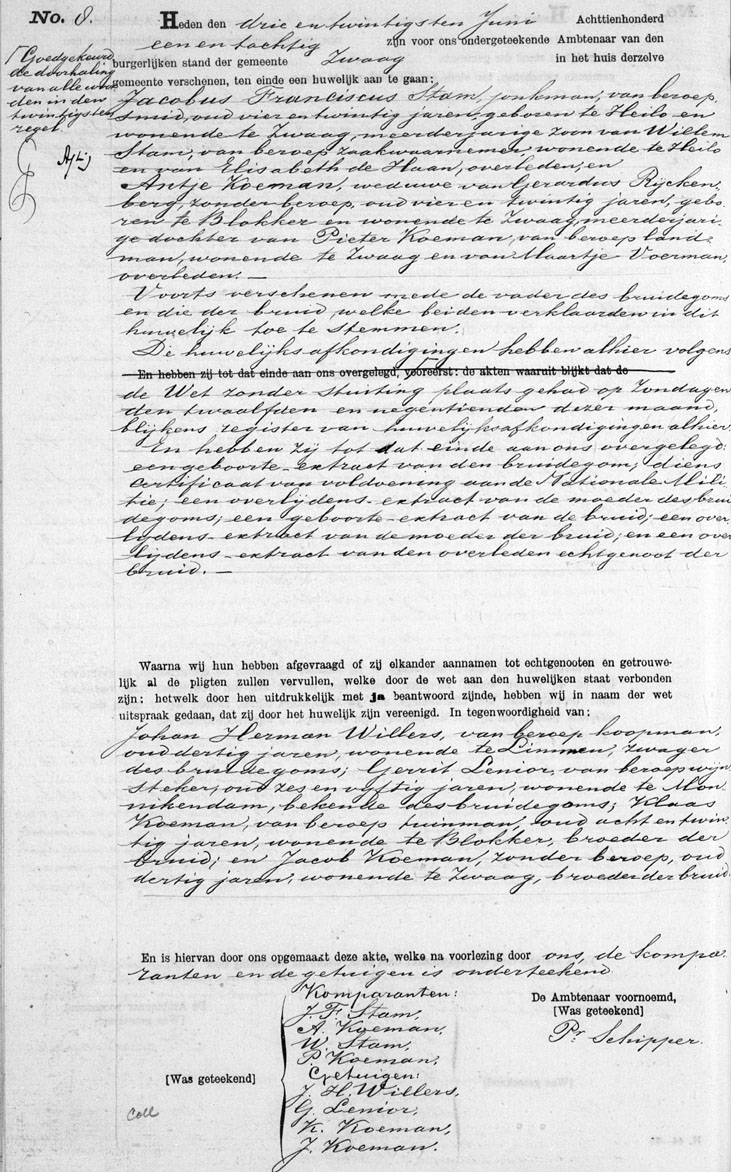 No. 8.
Heden den drie en twintigsten Juni Achttienhonderd
een en tachtig zijn voor ons ondergeteekende Ambtenaar van den
burgerlijken stand der gemeente Zwaag in het huis derzelve
gemeente verschenen, ten einde een huwelijk aan te gaan:
Goedgekeurd
de doorhaling
van alle woor
den in den
twintigsten
regel.
Jacobus Franciscus Stam, jonkman, van beroep
smid, oud vier en twintig jaren, geboren te Heilo en
wonende te Zwaag, meerderjarige zoon van Willem
Stam, van beroep zaakwaarnemer wonende te Heilo
en van Elisabeth de Haan, overleden, en
Antje Koeman, weduwe van Gerardus Rijcken,
berg, zonder beroep, oud vier en twintig jaren, gebo,
ren te Blokker en wonende te Zwaag, meerderjari,
ge dochter van Pieter Koeman, van beroep land,
man, wonende te Zwaag en van Maartje Voerman,
overleden. —
Voorts verschenen mede de vader des bruidegoms
en die der bruid, welke beiden verklaarden in dit
huwelijk toe te stemmen.
De huwelijksafkondigingen hebben alhier volgens
En hebben zij tot dat einde aan ons overgelegd, vooreerst: de akten waaruit blijkt dat de
de Wet zonder stuiting plaats gehad op Zondagen
den twaalfden en negentienden dezer maand,
blijkens register van huwelijksafkondigingen alhier.
En hebben zij tot dat einde aan ons overgelegd:
een geboorte-extract van den bruidegom; diens
certificaat van voldoening aan de Nationale Mili
tie; een overlijdens-extract van de moeder des brui
degoms; een geboorte-extract van de bruid; een over
lijdens-extract van de moeder der bruid; en een over
lijdens-extract van den overleden echtgenoot der
bruid. —
Waarna wij hun hebben afgevraagd of zij elkander aannamen tot echtgenooten en getrouwe-
lijk al de pligten zullen vervullen, welke door de wet aan den huwelijken staat verbonden
zijn; hetwelk door hen uitdrukkelijk met ja beantwoord zijnde, hebben wij in naam der wet
uitspraak gedaan, dat zij door het huwelijk zijn vereenigd. In tegenwoordigheid van:
Johan Herman Willers, van beroep koopman,
oud dertig jaren, wonende te Limmen, zwager
des bruidegoms; Gerrit Lenior, van beroep wijn
steker, oud zes en vijftig jaren, wonende te Mon,
nikendam, bekende des bruidegoms; Klaas
Koeman, van beroep tuinman, oud acht en twin,
tig jaren, wonende te Blokker, broeder der
bruid; en Jacob Koeman, zonder beroep, oud
dertig jaren, wonende te Zwaag, broeder der bruid.
En is hiervan door ons opgemaakt deze akte, welke na voorlezing door ons, de kompa,
ranten en de getuigen is onderteekend
Komparanten:
J. F. Stam,
A. Koeman,
W. Stam,
P. Koeman,
Getuigen:
J. H. Willers,
G. Lenior,
K. Koeman,
J. Koeman.
[Was geteekend]
De Ambtenaar voornoemd,
[Was geteekend]
Pr Schipper.
Coll